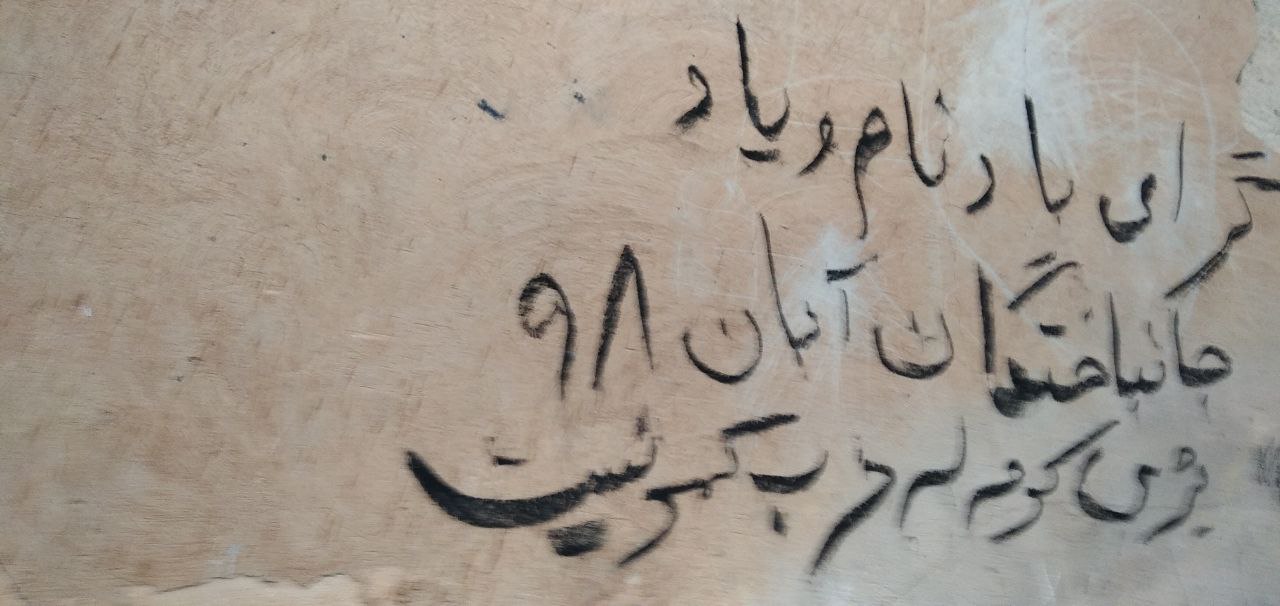 گرامی باد نام و یاد
جانباختگان آبان ۹۸
بژی کومه له و ح ب کمونیست